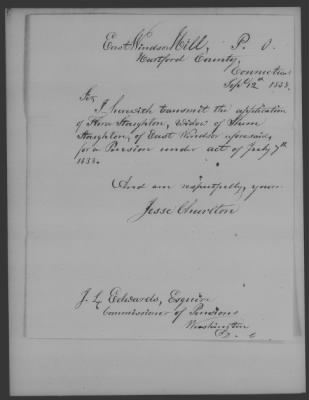 East Windsor Hill, P. O.
Hartford County,
Connecticut
Sept 12th 1838.
Sir,
I herewith transmit the application
of Flora Stoughton, widow of Shem
Stoughton, of East Windsor aforesaid,
for a Pension under act of July 7th
1838.
And am respectfully, yours
Jesse Charlton
J. L. Edwards, Esquire
Commissioner of Pensions
Washington
D. C.